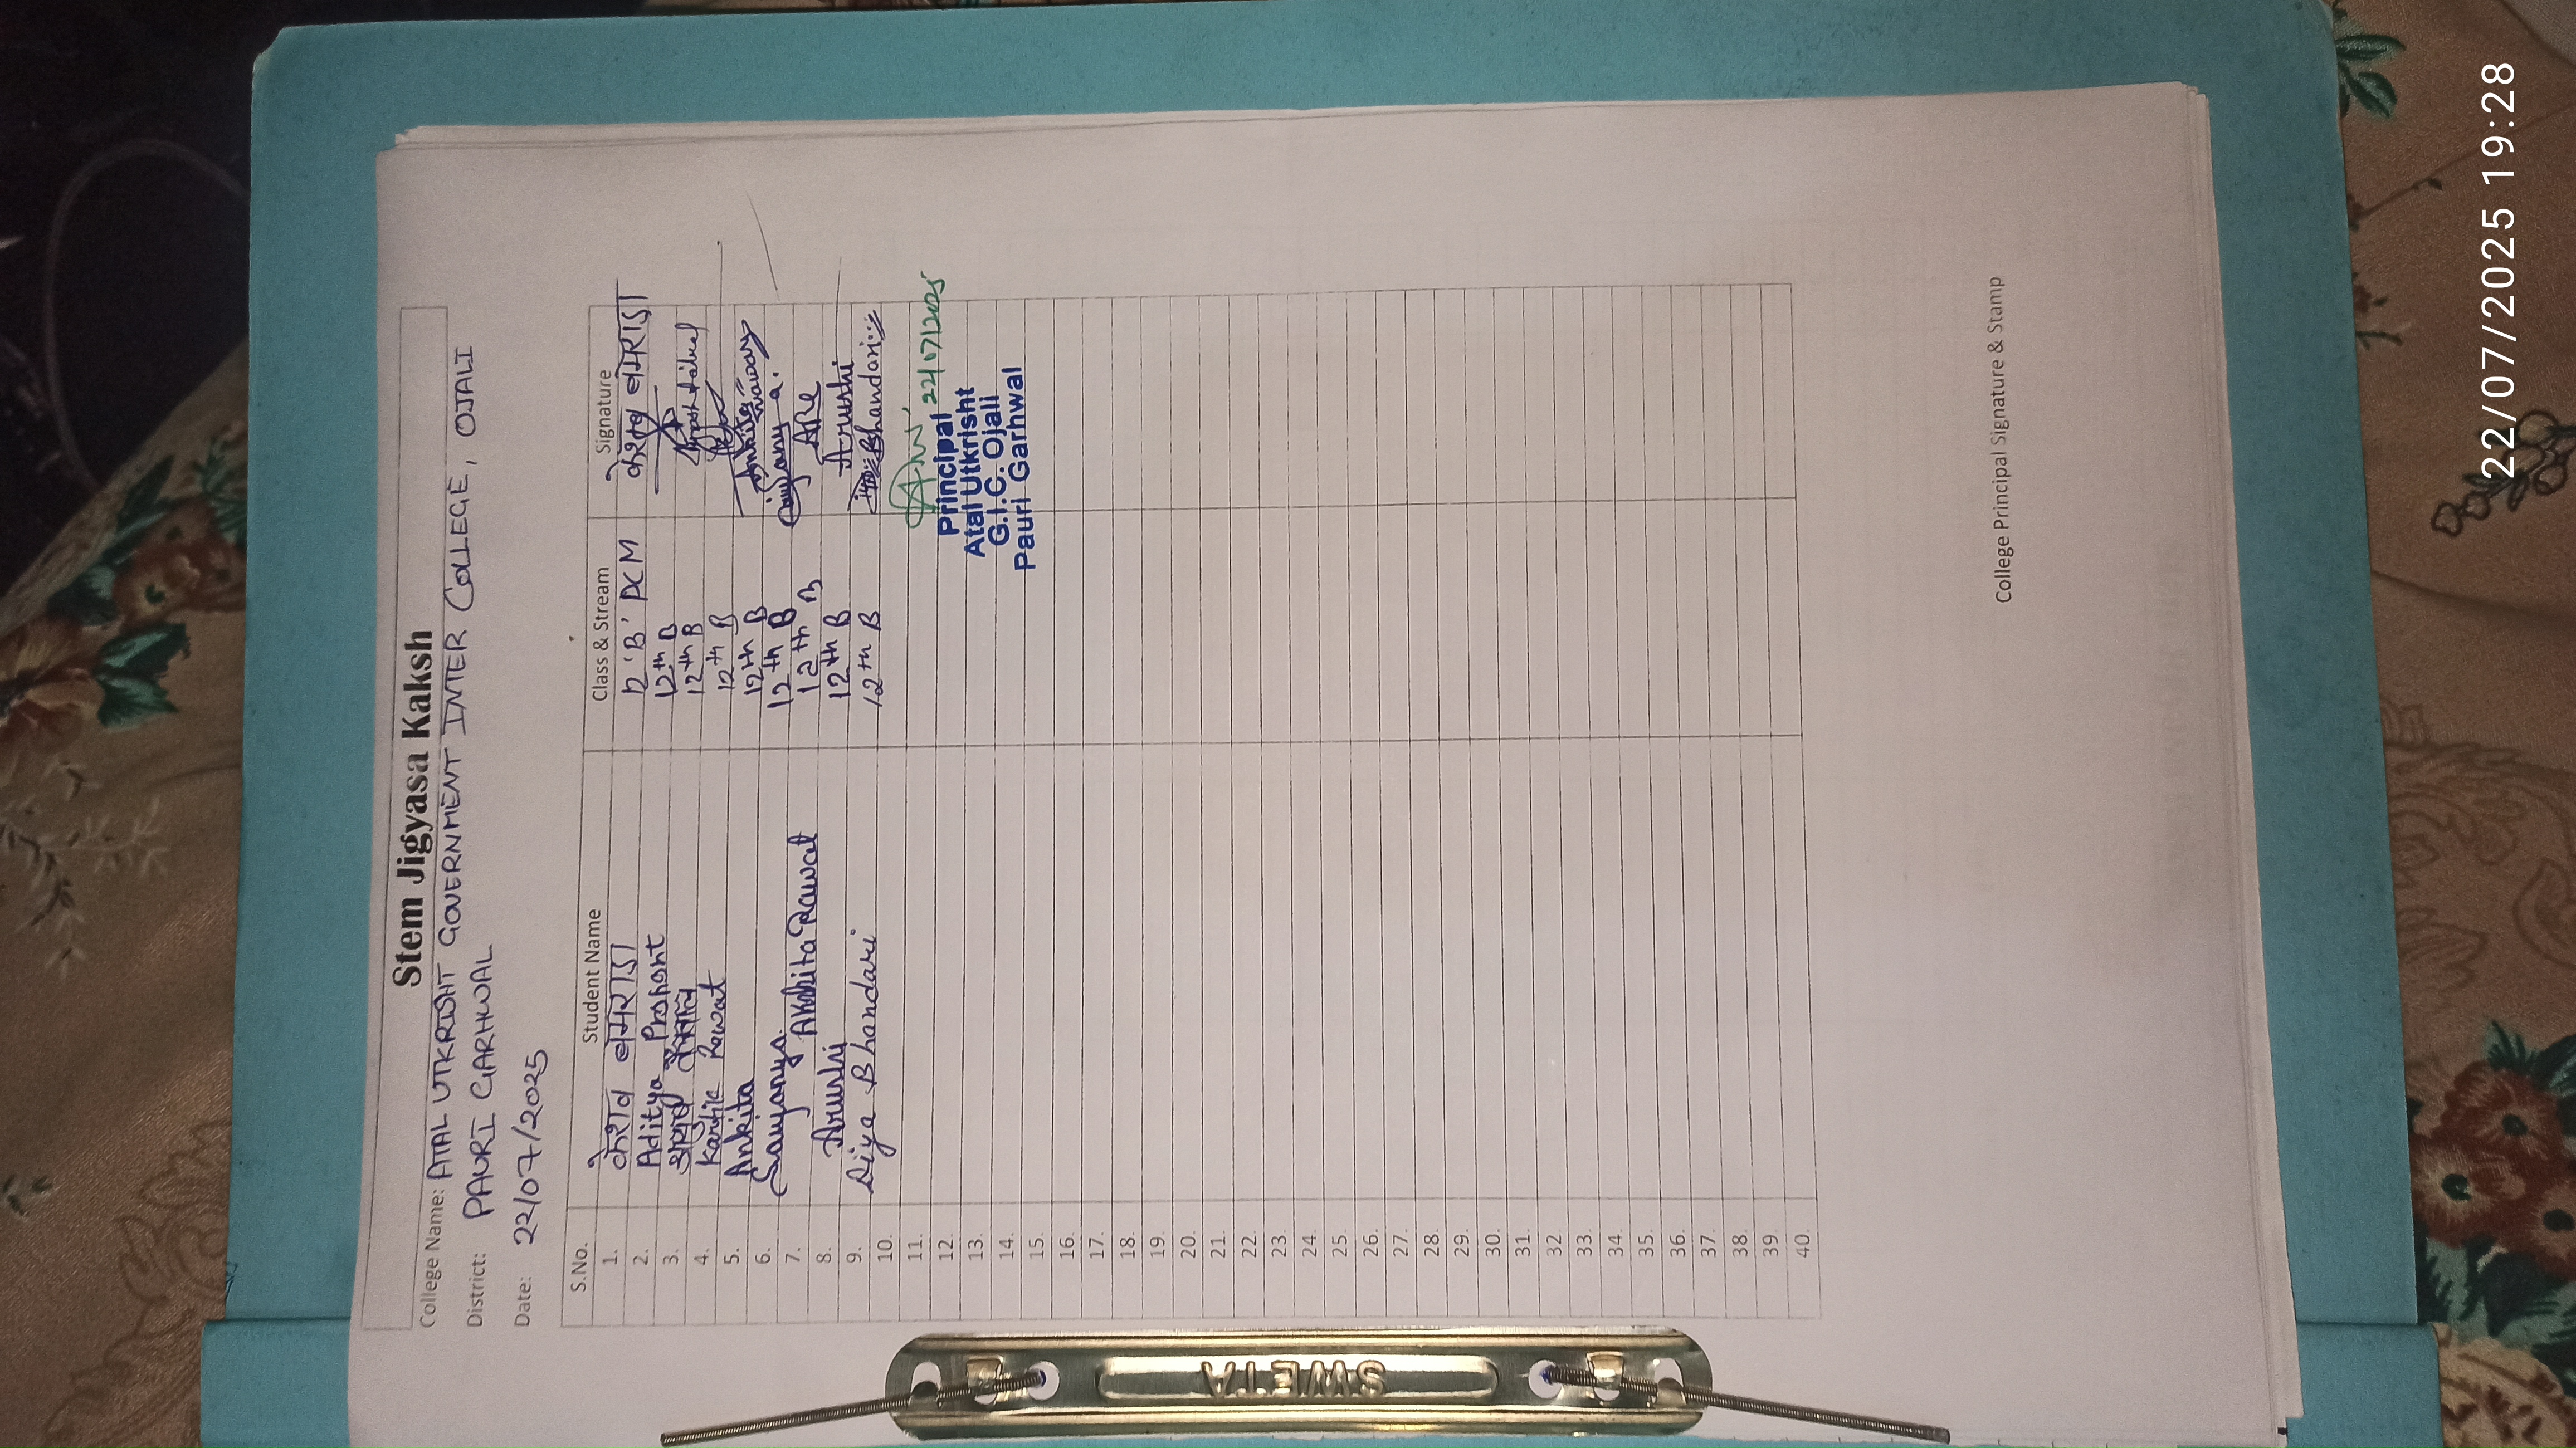 Stem Jigyasa Kaksh
College Name: ATAL UTKRISHT GOVERNMENT INTER COLLEGE, OJALI
District: PAURI GARHWAL
Date: 22/07/2025
S.No. Student Name Class & Stream Signature
1. केशव बमराडा 12 'B' PCM केशव बमराडा
2. Aditya Proshant 12th B
3. 12th B
4. Kartik Rawat 12th B
5. Ankita 12th B Ankita
6. Saujanya 12th B Saujanya
7. Akshita Rawat 12th B ARe
8. Arushi 12th B Arushi
9. Diya Bhandari 12th B Bhandari
10.
11. 22/07/2025
12. Principal
13. Atal Utkrisht
14. G.I.C. Ojali
15. Pauri Garhwal
16.
17.
18.
19.
20.
21.
22.
23.
24.
25.
26.
27.
28.
29.
30.
31.
32.
33.
34.
35.
36.
37.
38.
39.
40.
College Principal Signature & Stamp
SWETA
22/07/2025 19:28